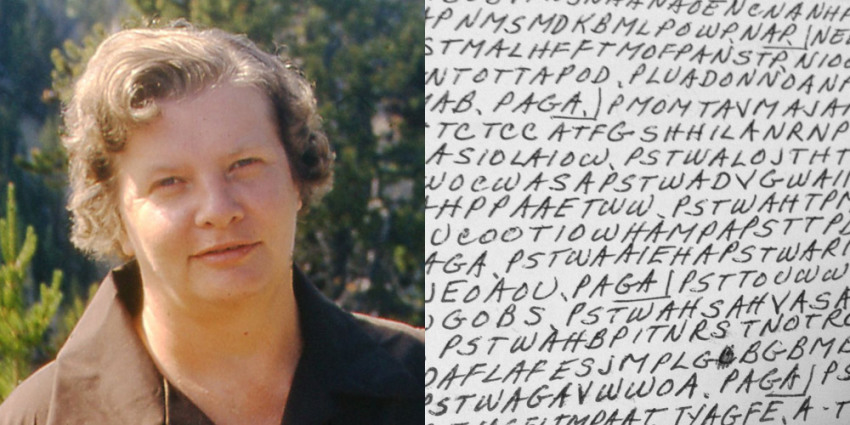 PNMSMDKBMLPOWP,NAP.|NE
STMALHFFTMOFPANSTP,NIO
NTOTTAPOD,PLUADONNOAN
AB. PAGA.) PMOMTAVMAJA
TCTCC ATFGSHHILANRNP
ASIOLAIOW. PSTWALOJTHT
WOCWASAPSTWADVGWAI
HPPAAETWW. PSTWAHTP
UCOOTIOWHAMPAPSTTP
AGA, PSTWAAIEHAPSTWAR
EOAOU, PAGA| PSTTOUWW
GOBS. PSTWAHSAHVASA
PSTWAHBPITNRS TNOTR
AFLAFESJMPLG BGBM
STWAGAVWWOA. PAGA| PS